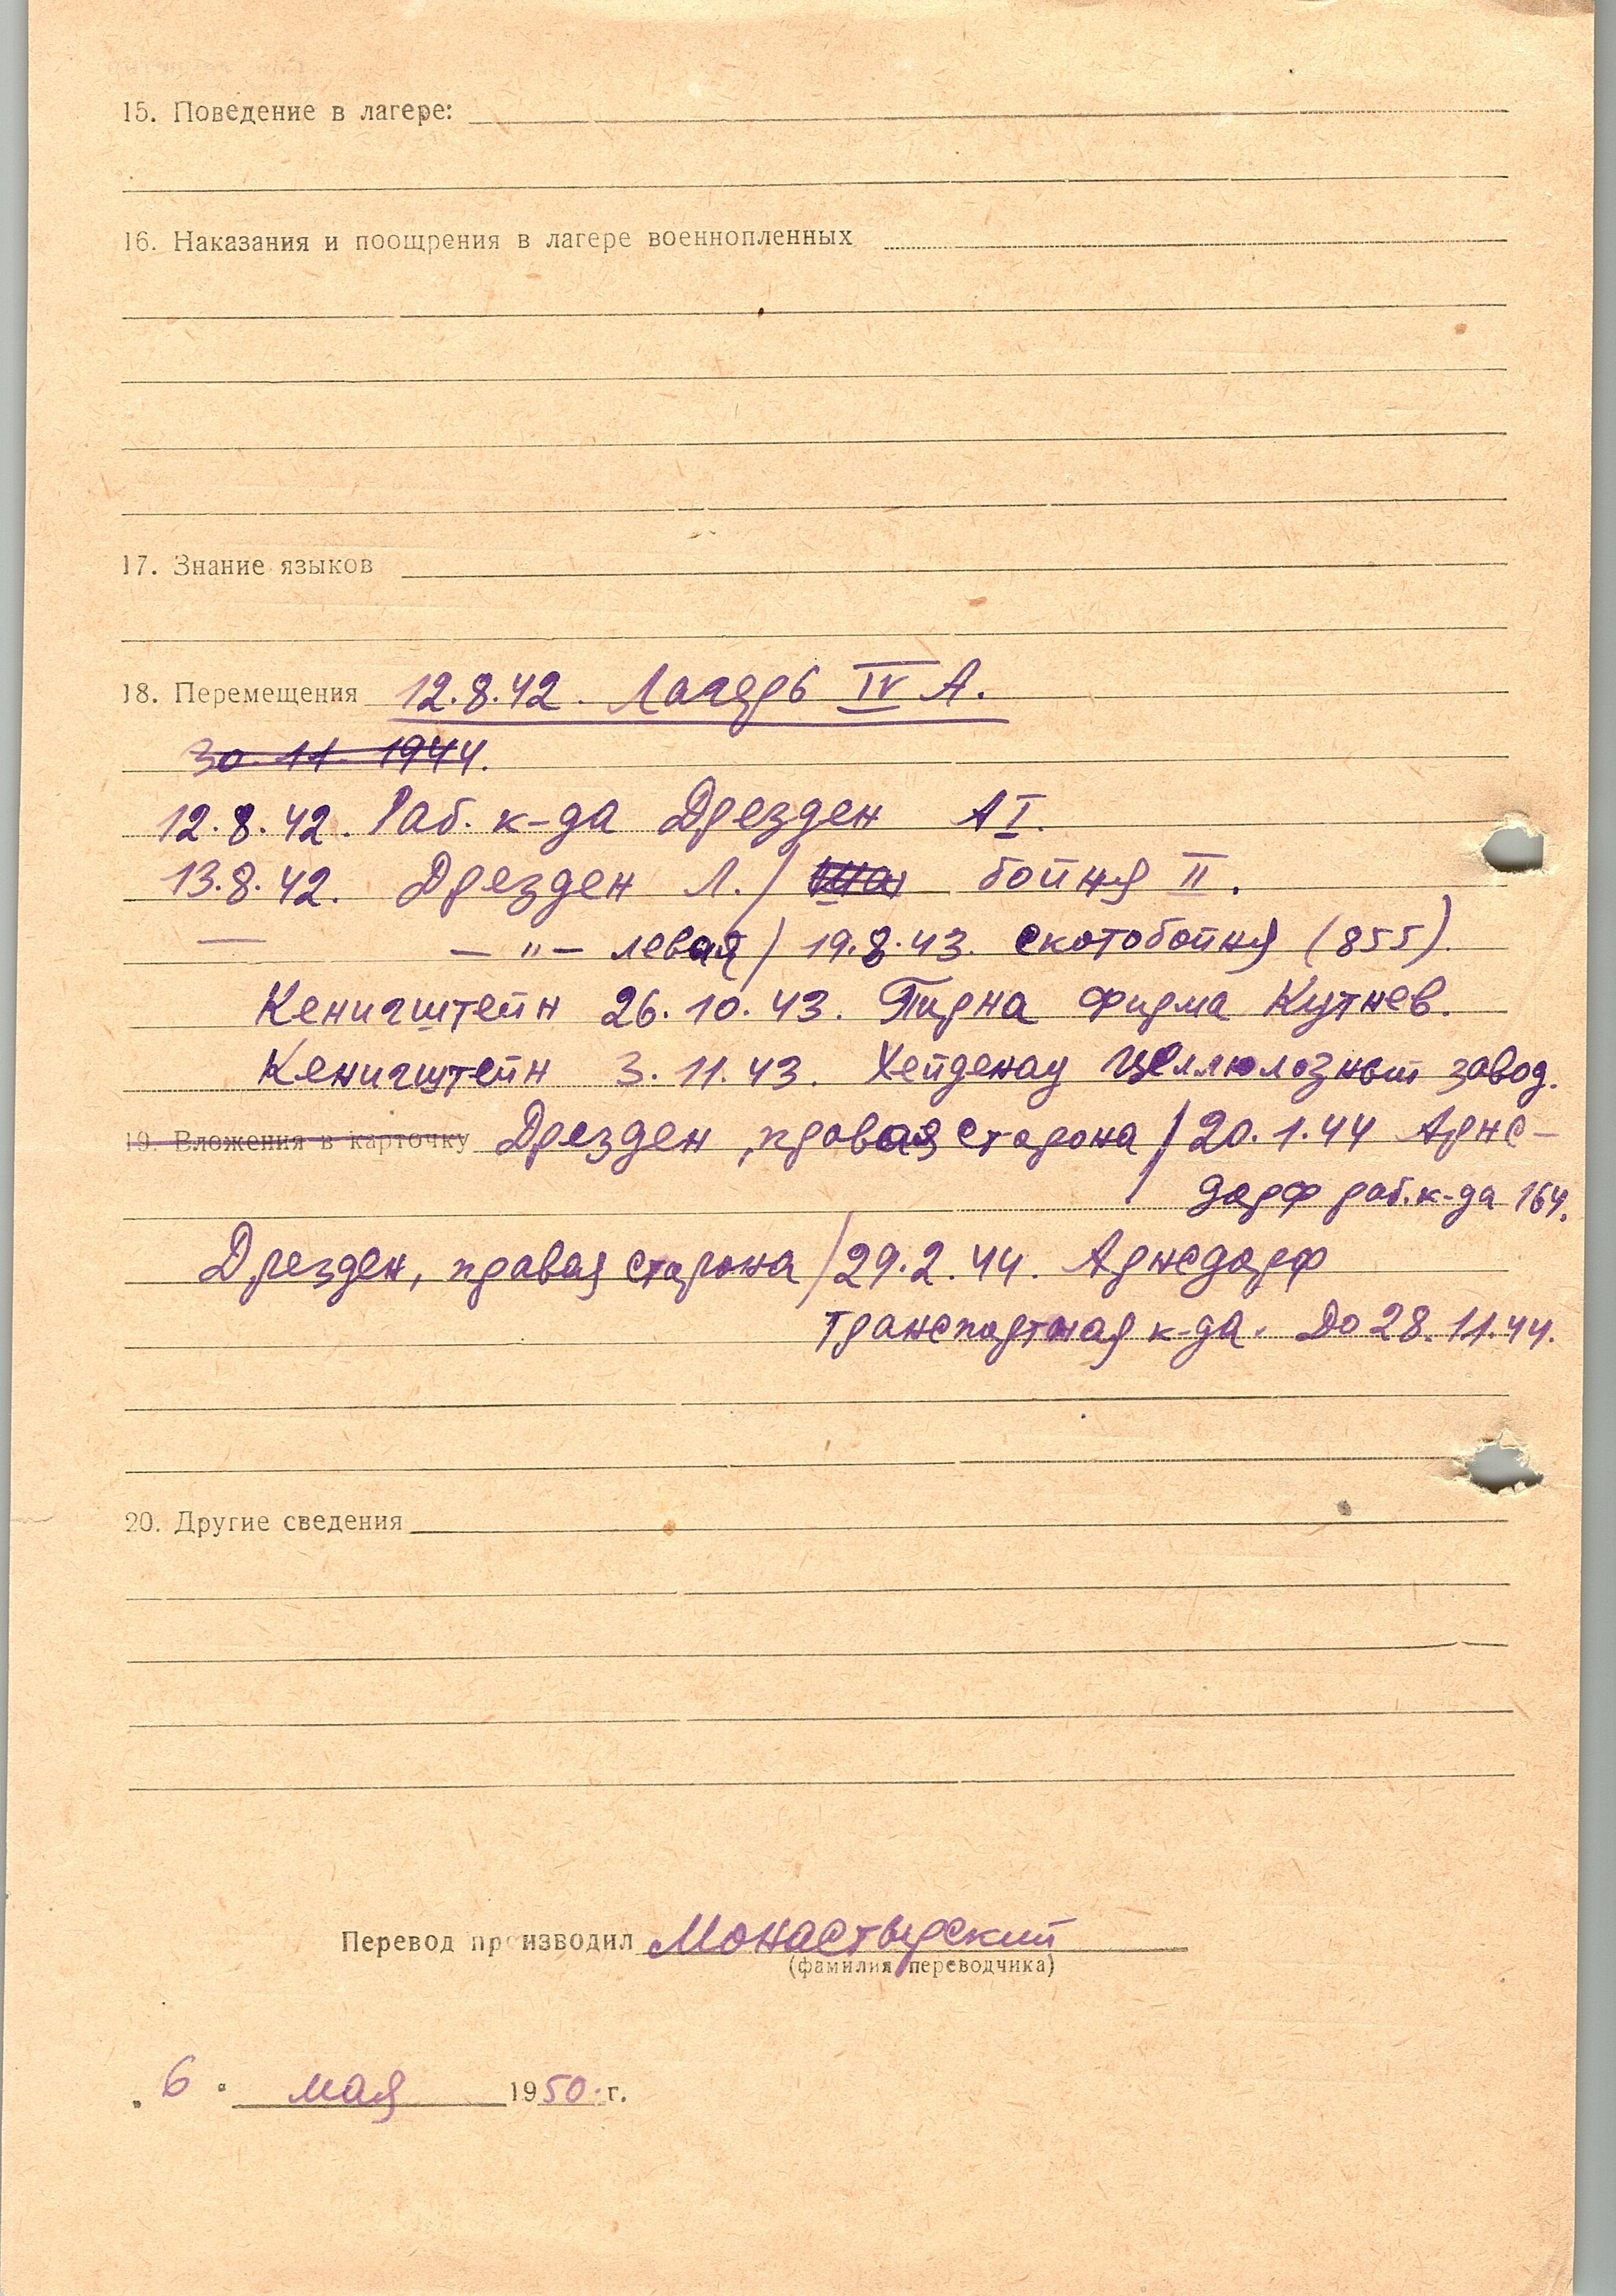 15. Поведение в лагере:
16. Наказания и поощрения в лагере военнопленных
17. Знание языков
18. Перемещения 12.8.42. Лагерь IV А.
30. 11. 1944.
12.8.42. Раб. к-да Дрезден А I.
13.8.42. Дрезден Л. / бойня II.
— — " — левая / 19.8.43. скотобойня (855).
Кенигштейн 26.10.43. Пирна фирма Кутнев.
Кенигштейн 3.11.43. Хейденау Целлюлозный завод.
19. Вложения в карточку Дрезден, правая сторона / 20.1.44 Арнс-
дорф раб. к-да 164.
Дрезден, правая сторона / 29.2.44. Арнсдорф
транспортная к-да. До 28.11.44.
20. Другие сведения
Перевод производил Монастырский
(фамилия переводчика)
„ 6 " мая 1950 г.